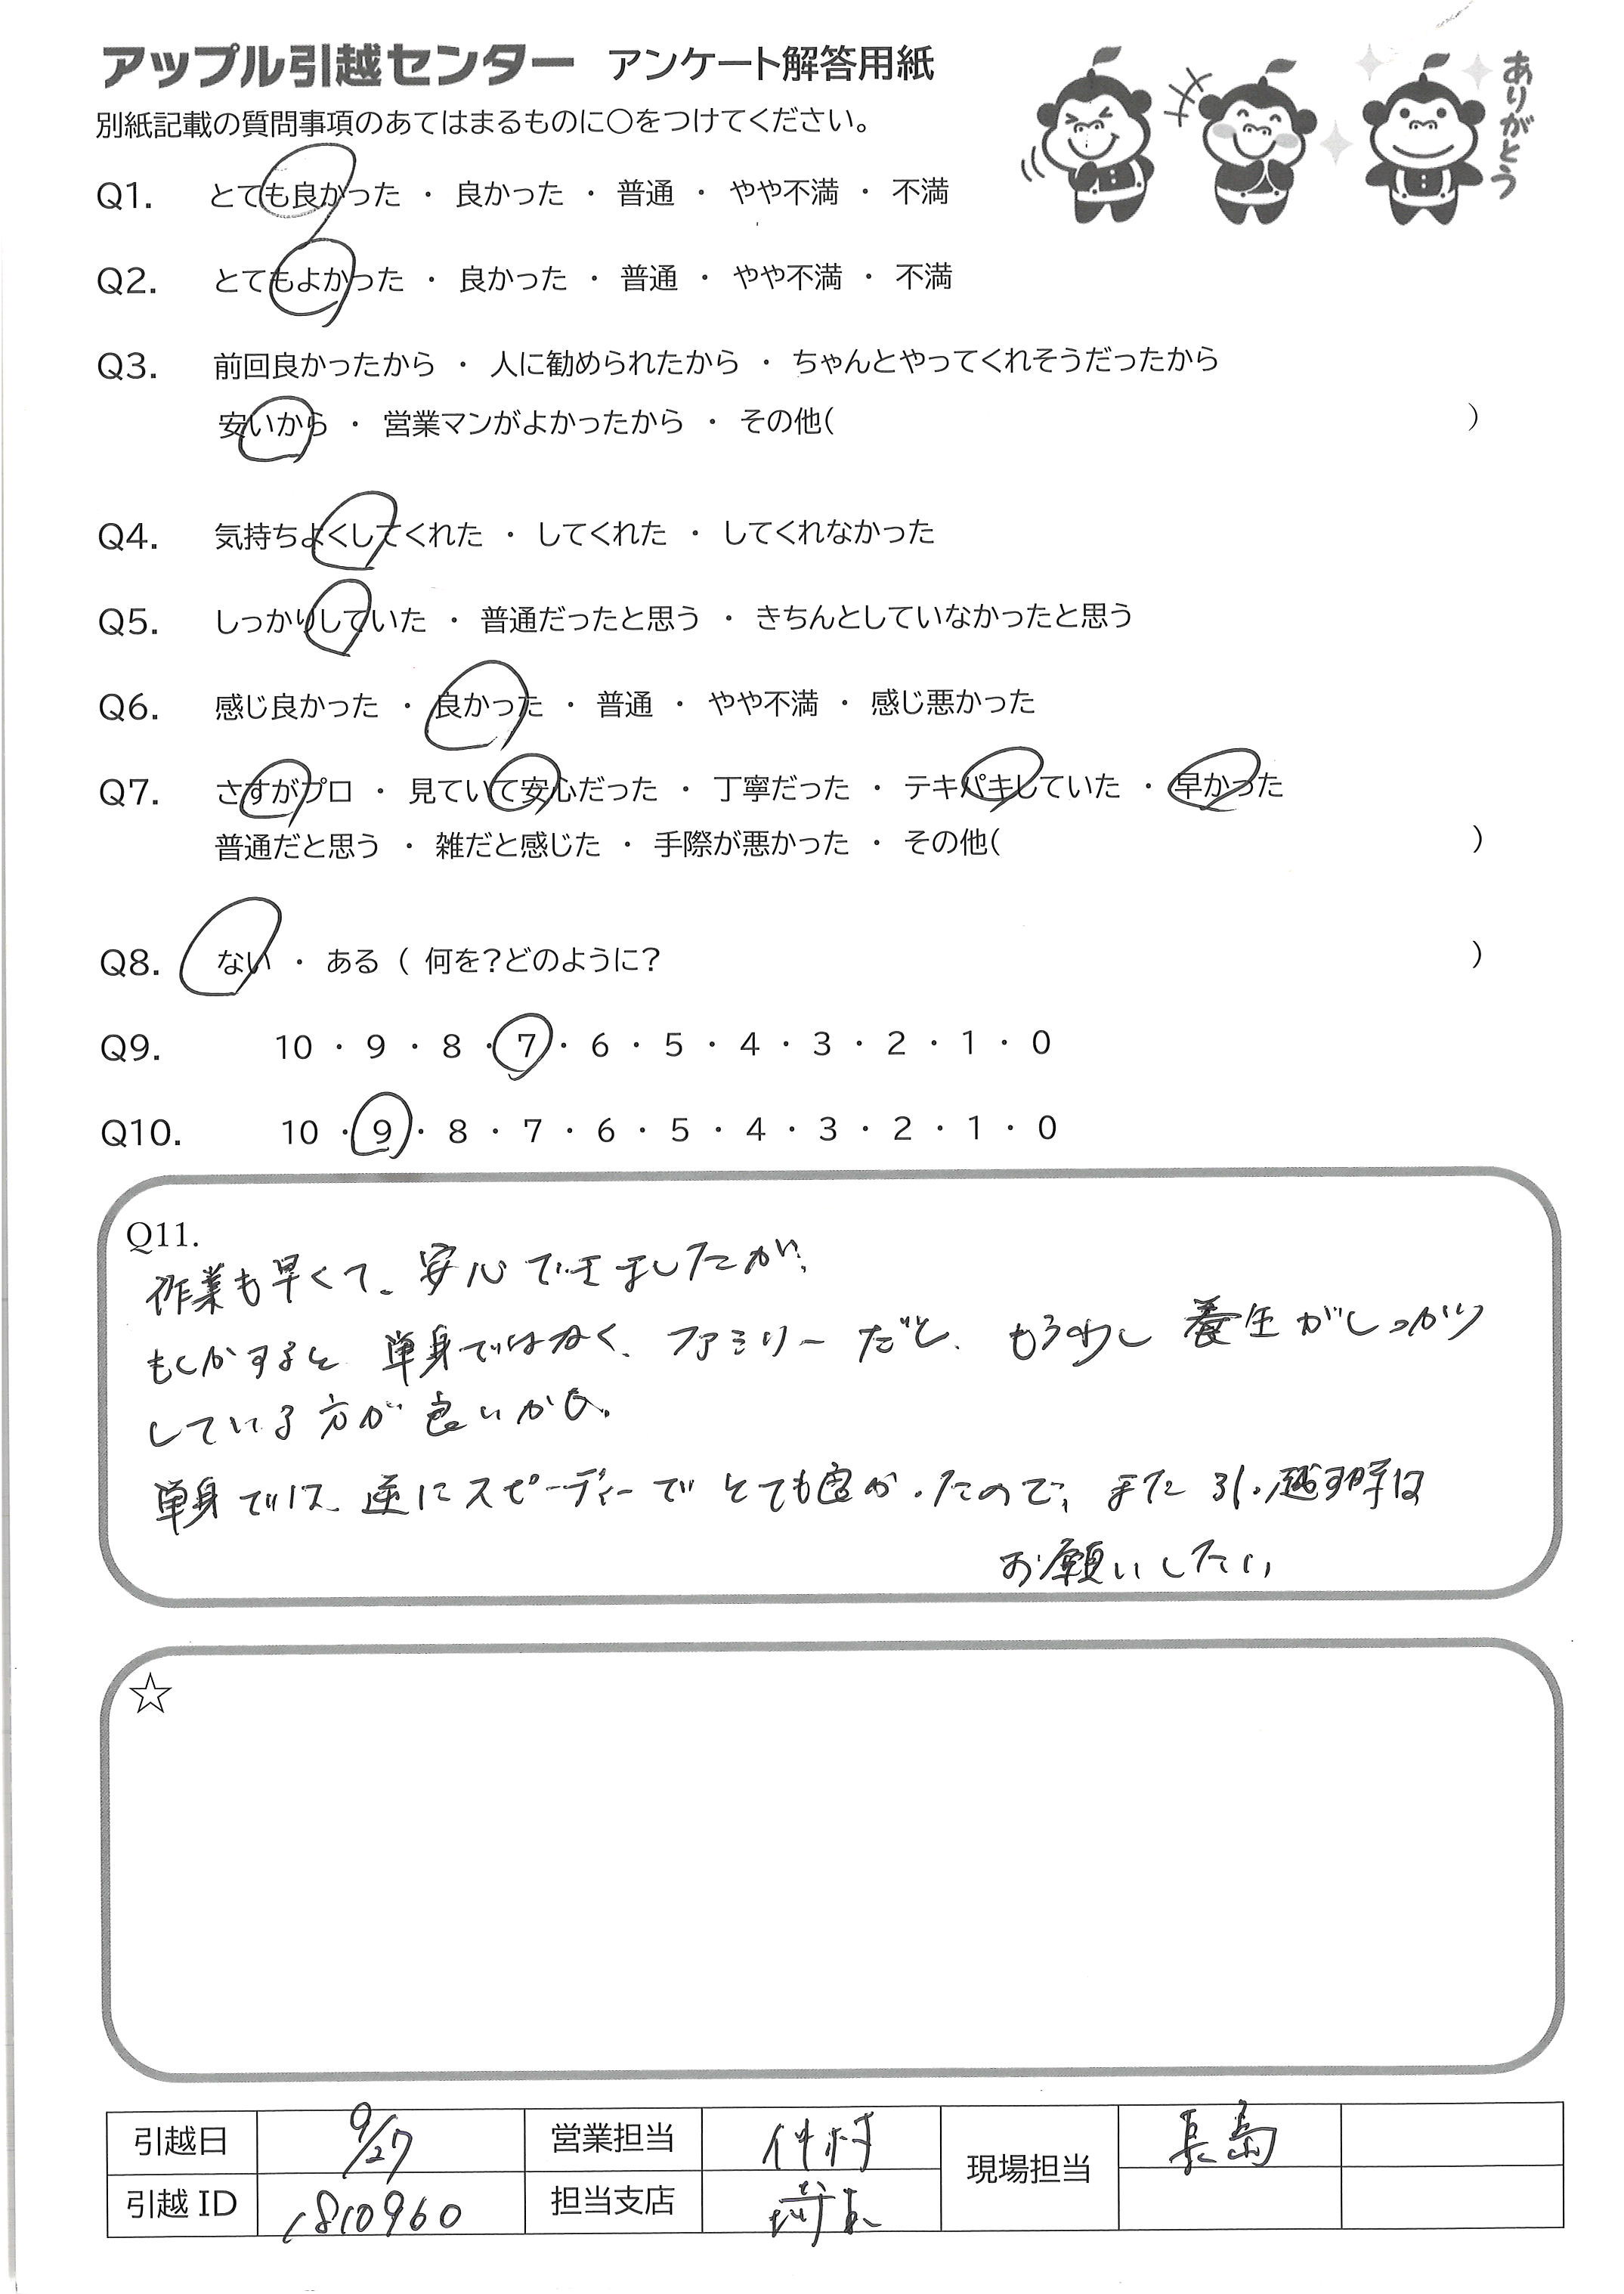 アップル引越センター アンケート解答用紙
ありがとう
別紙記載の質問事項のあてはまるものに○をつけてください。
Q1. とても良かった ・ 良かった ・ 普通 ・ やや不満 ・ 不満
Q2. とてもよかった ・ 良かった ・ 普通 ・ やや不満 ・ 不満
Q3. 前回良かったから ・ 人に勧められたから ・ ちゃんとやってくれそうだったから
安いから ・ 営業マンがよかったから ・ その他( )
Q4. 気持ちよくしてくれた ・ してくれた ・ してくれなかった
Q5. しっかりしていた ・ 普通だったと思う ・ きちんとしていなかったと思う
Q6. 感じ良かった ・ 良かった ・ 普通 ・ やや不満 ・ 感じ悪かった
Q7. さすがプロ ・ 見ていて安心だった ・ 丁寧だった ・ テキパキしていた ・ 早かった
普通だと思う ・ 雑だと感じた ・ 手際が悪かった ・ その他( )
Q8. ない ・ ある ( 何を?どのように? )
Q9. 10 ・ 9 ・ 8 ・ 7 ・ 6 ・ 5 ・ 4 ・ 3 ・ 2 ・ 1 ・ 0
Q10. 10 ・ 9 ・ 8 ・ 7 ・ 6 ・ 5 ・ 4 ・ 3 ・ 2 ・ 1 ・ 0
Q11.
作業も早くて、安心できましたが、
もしかすると 単身ではなく、ファミリーだと、もう少し 養生がしっかり
している方が良いかも。
単身では、逆にスピーディーで とても良かったので、また 引っ越す時は
お願いしたい
☆
引越日 9/27 営業担当 現場担当 長島
引越 ID 1810960 担当支店